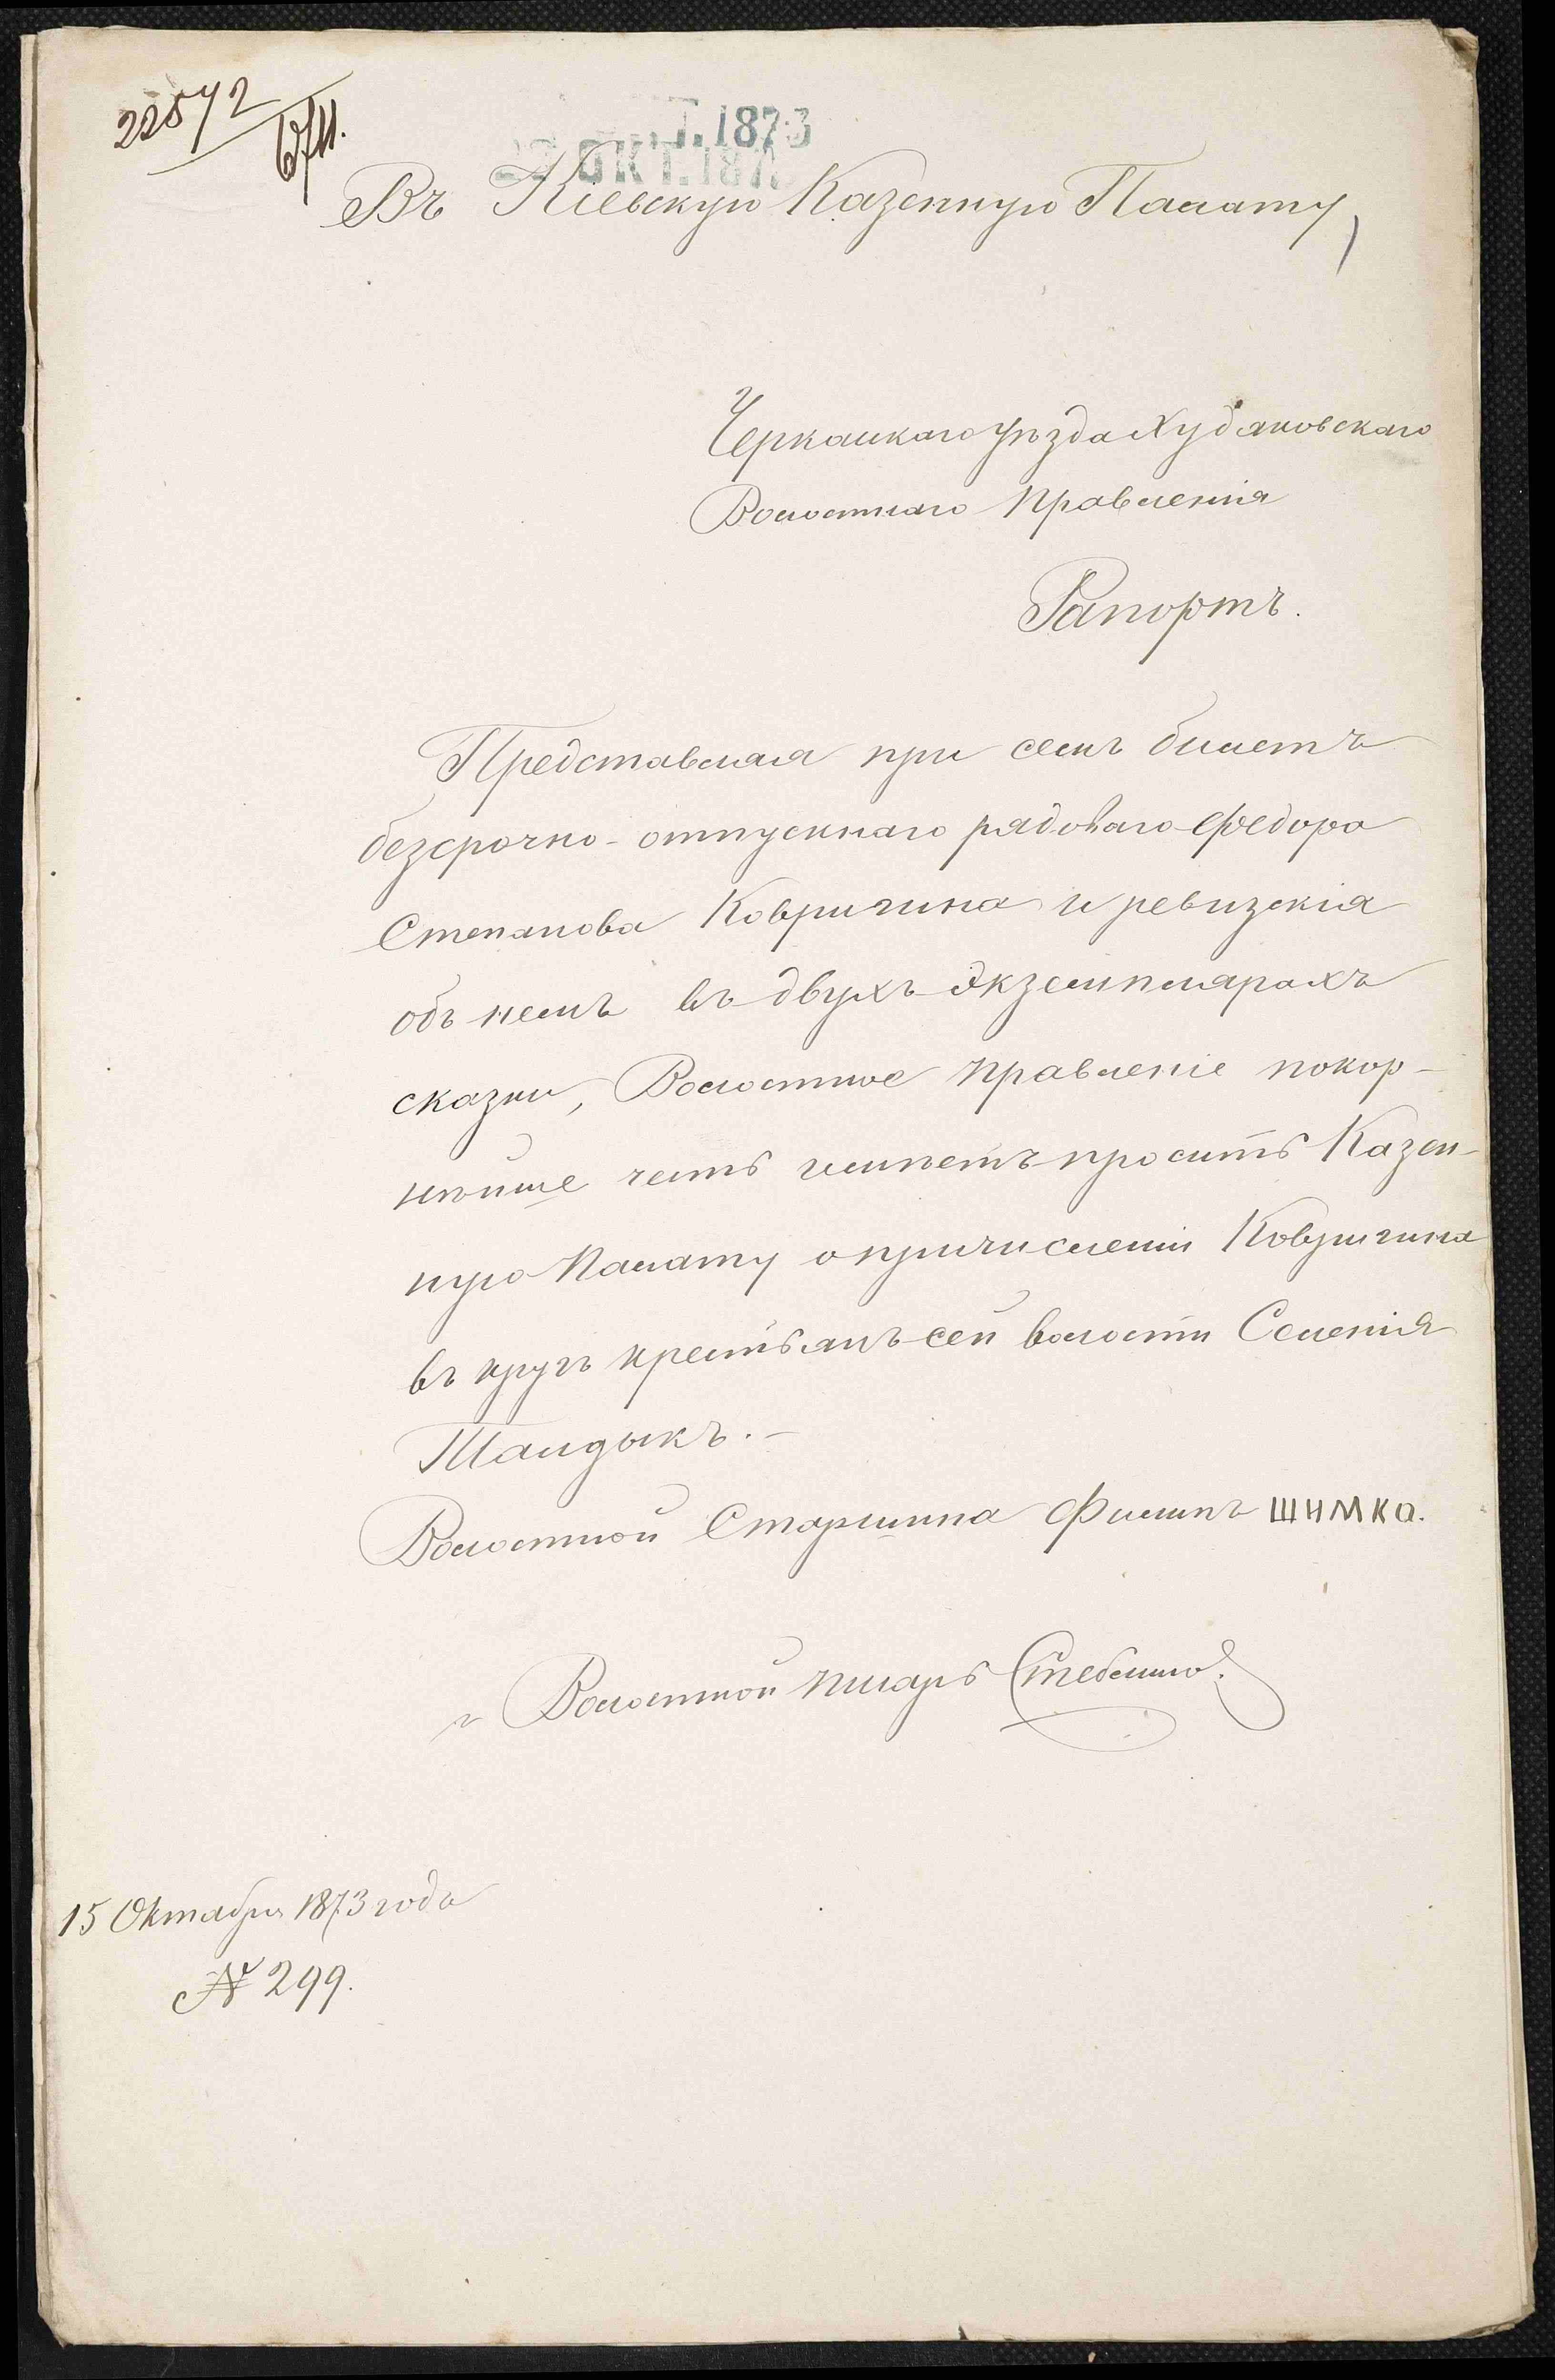 22572
6/11.
Т. 1873
22 ОКТ. 187
Въ Кіевскую Казенную Палату,
Черкаскаго уѣзда Худяковскаго
Волостнаго Правленія
Рапортъ.
Представляя при семъ билетъ
безсрочно-отпускнаго рядоваго Федора
Степанова Ковригина и ревизскія
объ немъ въ двухъ экземплярахъ
сказки, Волостное Правленіе покор-
нѣйше честь имѣетъ просить Казен-
ную Палату о причисленіи Ковригина
въ кругъ крестьянъ сей волости Селенія
Талдыкъ.-
Волостной Старшина Филипъ ШИМКа.
Волостной Писарь
15 Октября 1873 года
№ 299.